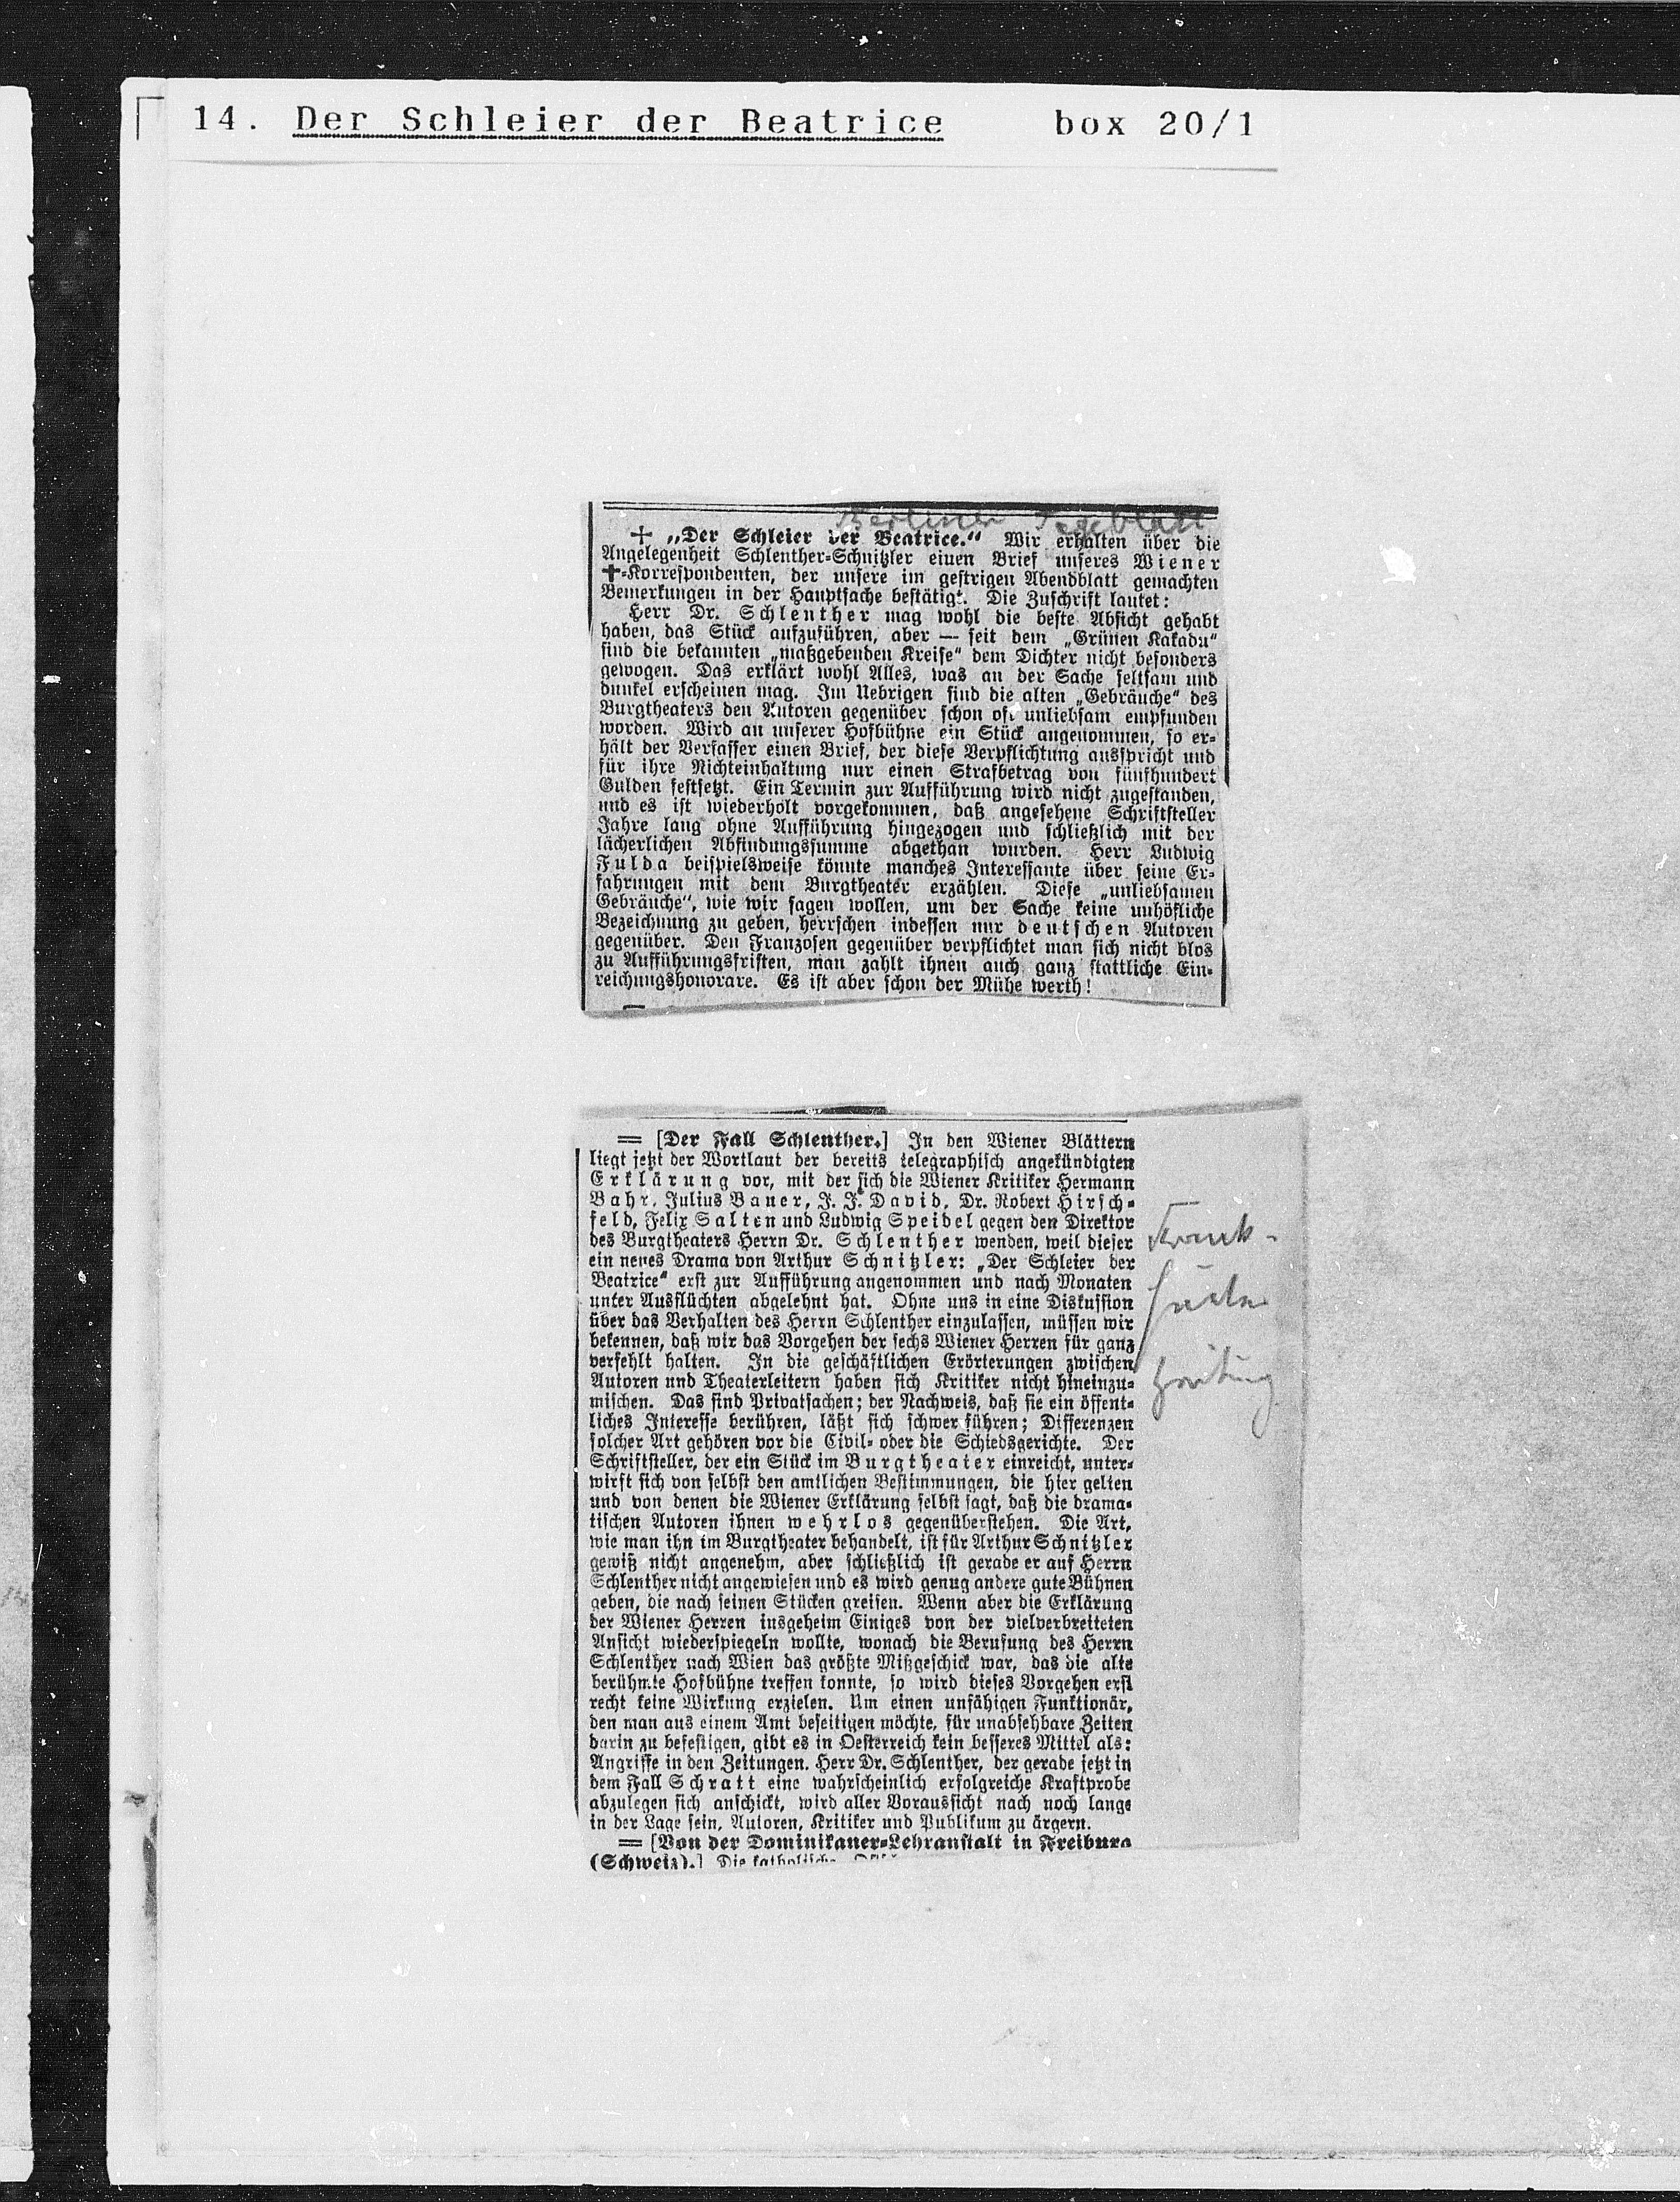 14. Der Schleier der Beatrice box 20/1
Berliner Tageblatt
† „Der Schleier der Beatrice.“ Wir erhalten über die
Angelegenheit Schlenther-Schnitzler einen Brief unseres Wiener
†-Korrespondenten, der unsere im gestrigen Abendblatt gemachten
Bemerkungen in der Hauptsache bestätigt. Die Zuschrift lautet:
Herr Dr. Schlenther mag wohl die beste Absicht gehabt
haben, das Stück aufzuführen, aber — seit dem „Grünen Kakadu“
sind die bekannten „maßgebenden Kreise“ dem Dichter nicht besonders
gewogen. Das erklärt wohl Alles, was an der Sache seltsam und
dunkel erscheinen mag. Im Uebrigen sind die alten „Gebräuche“ des
Burgtheaters den Autoren gegenüber schon oft unliebsam empfunden
worden. Wird an unserer Hofbühne ein Stück angenommen, so er-
hält der Verfasser einen Brief, der diese Verpflichtung ausspricht und
für ihre Nichteinhaltung nur einen Strafbetrag von fünfhundert
Gulden festsetzt. Ein Termin zur Aufführung wird nicht zugestanden,
und es ist wiederholt vorgekommen, daß angesehene Schriftsteller
Jahre lang ohne Aufführung hingezogen und schließlich mit der
lächerlichen Abfindungssumme abgethan wurden. Herr Ludwig
Fulda beispielsweise könnte manches Interessante über seine Er-
fahrungen mit dem Burgtheater erzählen. Diese „unliebsamen
Gebräuche“, wie wir sagen wollen, um der Sache keine unhöfliche
Bezeichnung zu geben, herrschen indessen nur deutschen Autoren
gegenüber. Den Franzosen gegenüber verpflichtet man sich nicht blos
zu Aufführungsfristen, man zahlt ihnen auch ganz stattliche Ein-
reichungshonorare. Es ist aber schon der Mühe werth!
= [Der Fall Schlenther.] In den Wiener Blättern
liegt jetzt der Wortlaut der bereits telegraphisch angekündigten
Erklärung vor, mit der sich die Wiener Kritiker Hermann
Bahr, Julius Bauer, J. J. David, Dr. Robert Hirsch-
feld, Felix Salten und Ludwig Speidel gegen den Direktor
des Burgtheaters Herrn Dr. Schlenther wenden, weil dieser
ein neues Drama von Arthur Schnitzler: „Der Schleier der
Beatrice“ erst zur Aufführung angenommen und nach Monaten
unter Ausflüchten abgelehnt hat. Ohne uns in eine Diskussion
über das Verhalten des Herrn Schlenther einzulassen, müssen wir
bekennen, daß wir das Vorgehen der sechs Wiener Herren für ganz
verfehlt halten. In die geschäftlichen Erörterungen zwischen
Autoren und Theaterleitern haben sich Kritiker nicht hineinzu-
mischen. Das sind Privatsachen; der Nachweis, daß sie ein öffent-
liches Interesse berühren, läßt sich schwer führen; Differenzen
solcher Art gehören vor die Civil- oder die Schiedsgerichte. Der
Schriftsteller, der ein Stück im Burgtheater einreicht, unter-
wirft sich von selbst den amtlichen Bestimmungen, die hier gelten
und von denen die Wiener Erklärung selbst sagt, daß die drama-
tischen Autoren ihnen wehrlos gegenüberstehen. Die Art,
wie man ihn im Burgtheater behandelt, ist für Arthur Schnitzler
gewiß nicht angenehm, aber schließlich ist gerade er auf Herrn
Schlenther nicht angewiesen und es wird genug andere gute Bühnen
geben, die nach seinen Stücken greifen. Wenn aber die Erklärung
der Wiener Herren insgeheim Einiges von der vielverbreiteten
Ansicht wiederspiegeln wollte, wonach die Berufung des Herrn
Schlenther nach Wien das größte Mißgeschick war, das die alte
berühmte Hofbühne treffen konnte, so wird dieses Vorgehen erst
recht keine Wirkung erzielen. Um einen unfähigen Funktionär,
den man aus einem Amt beseitigen möchte, für unabsehbare Zeiten
darin zu befestigen, gibt es in Oesterreich kein besseres Mittel als:
Angriffe in den Zeitungen. Herr Dr. Schlenther, der gerade jetzt in
dem Fall Schratt eine wahrscheinlich erfolgreiche Kraftprobe
abzulegen sich anschickt, wird aller Voraussicht nach noch lange
in der Lage sein, Autoren, Kritiker und Publikum zu ärgern.
= [Von der Dominikaner-Lehranstalt in Freiburg
(Schweiz).] Die katholische
Frank-
furter
Zeitung